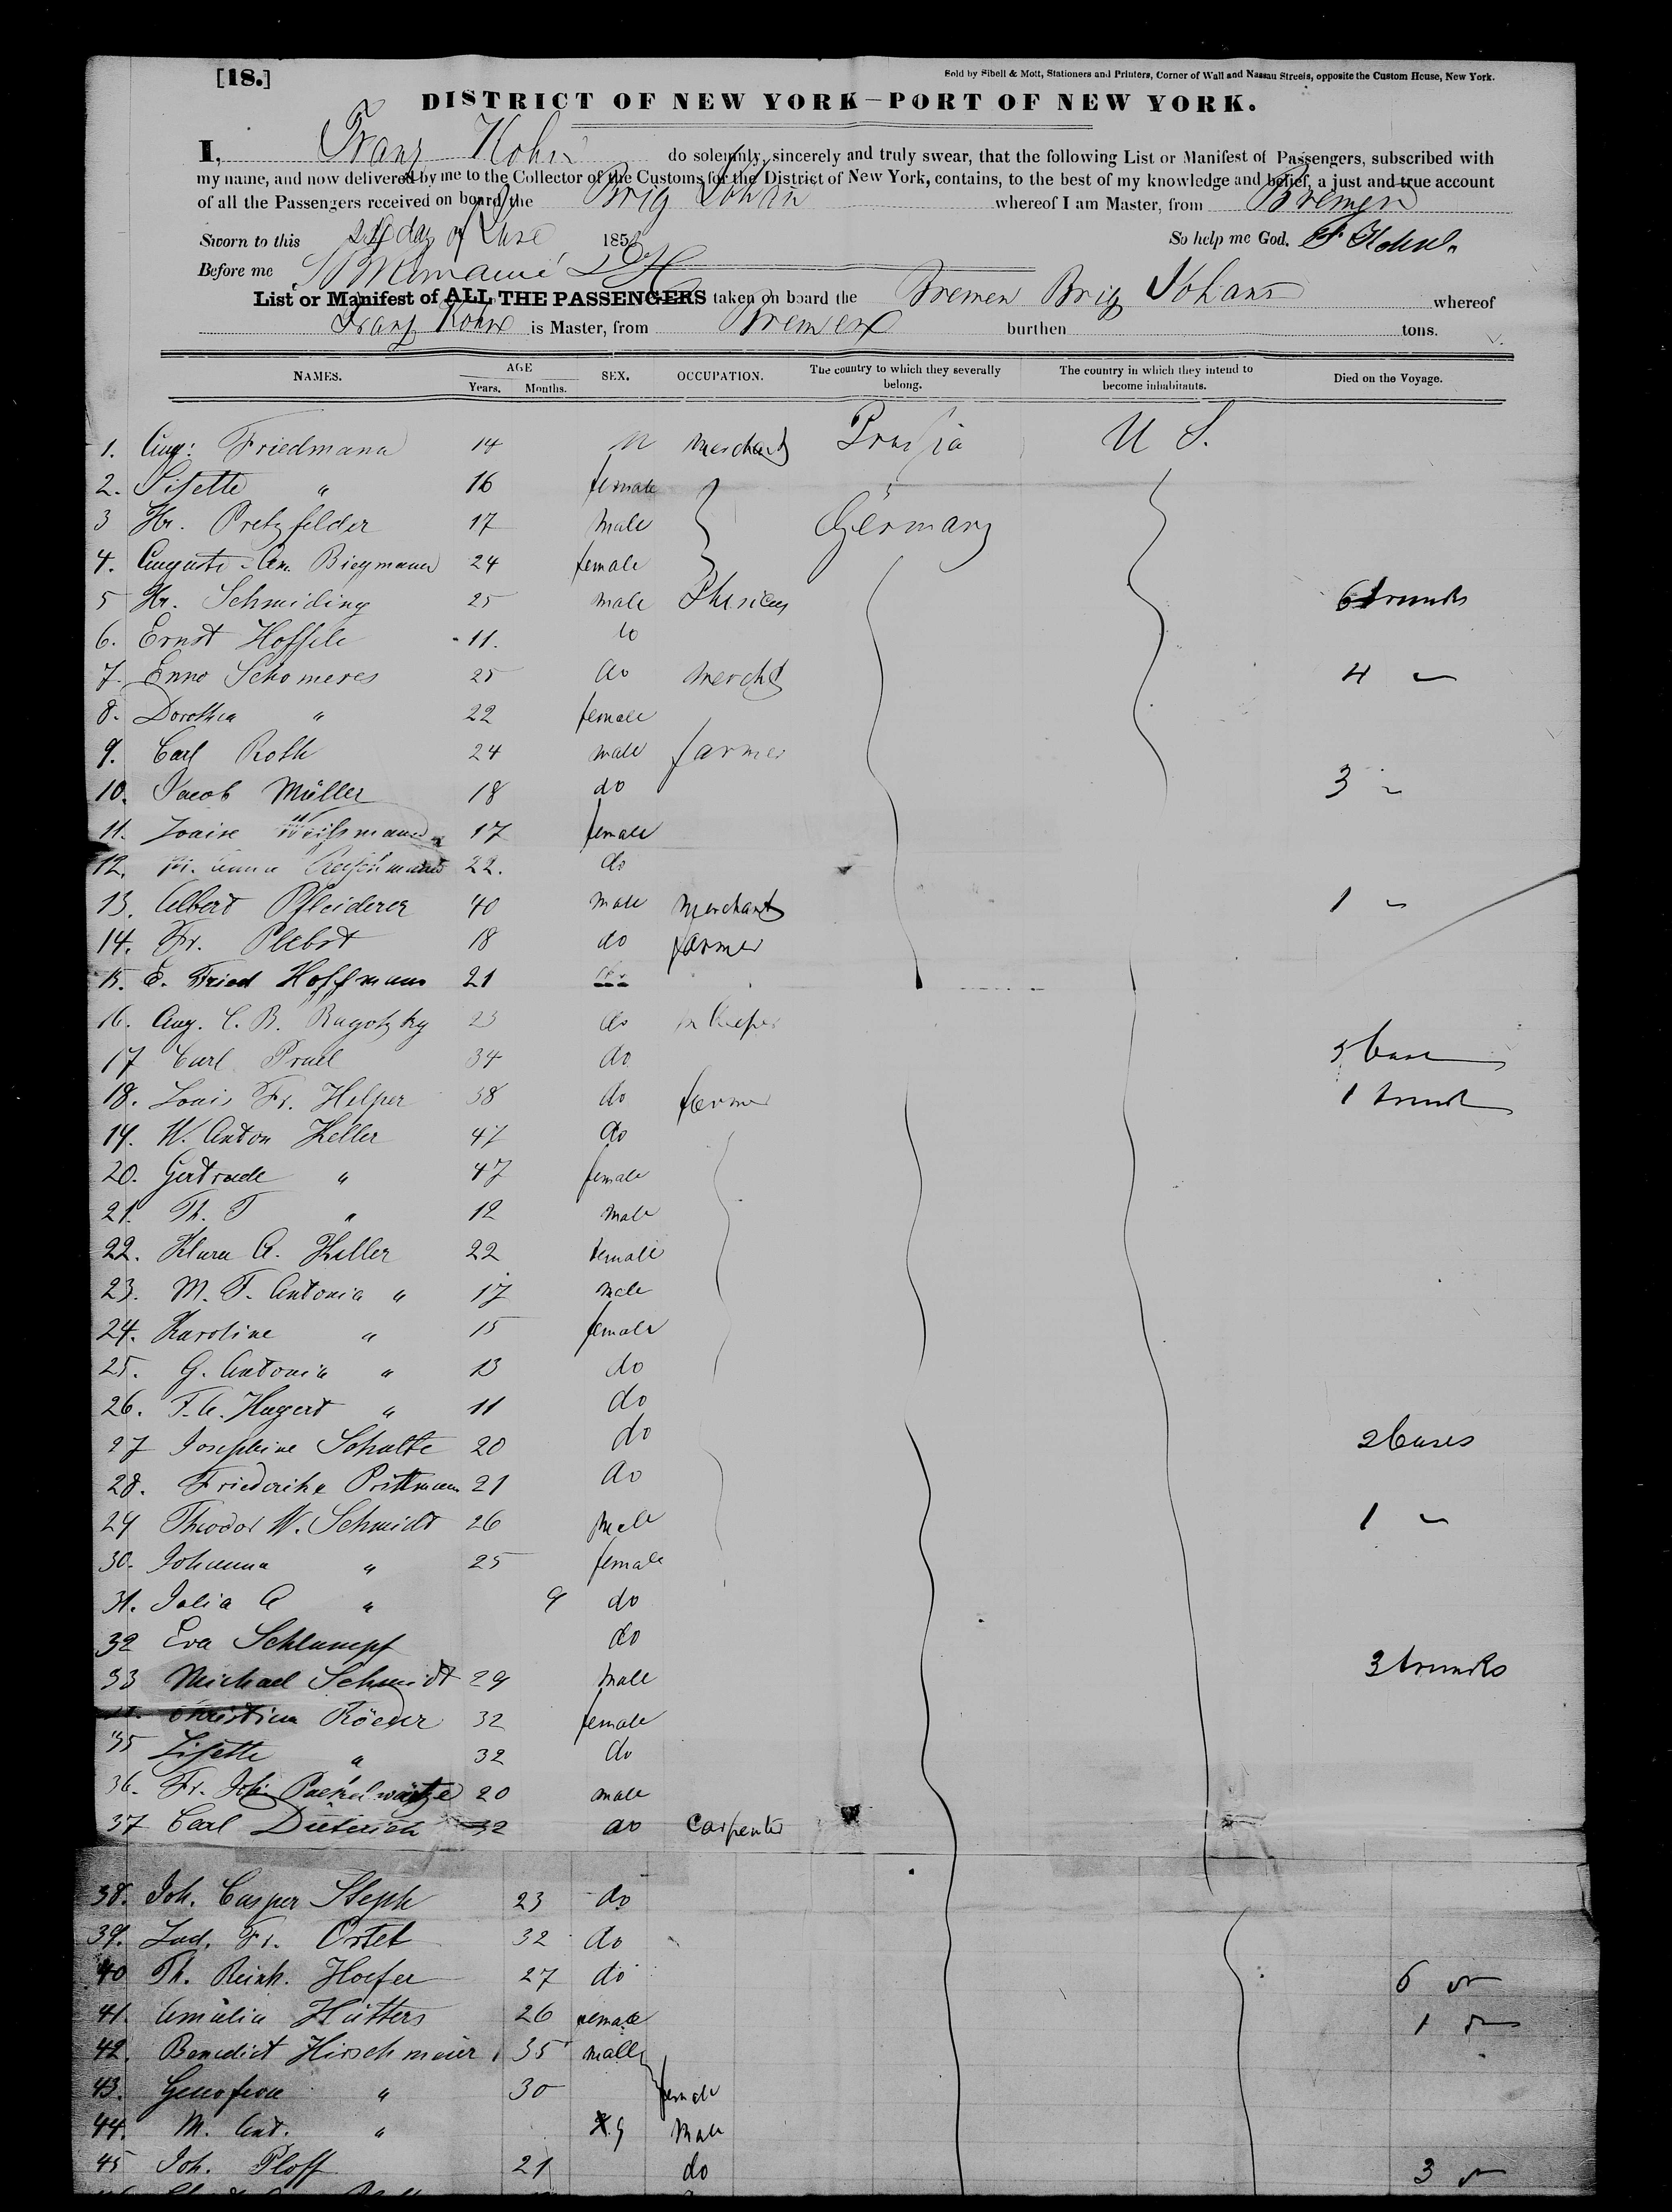 [18.]
Sold by Sibell & Mott, Stationers and Printers, Corner of Wall and Nassau Streets, opposite the Custom House, New York.
DISTRICT OF NEW YORK—PORT OF NEW YORK.
I, Franz Kohn do solemnly, sincerely and truly swear, that the following List or Manifest of Passengers, subscribed with
my name, and now delivered by me to the Collector of the Customs for the District of New York, contains, to the best of my knowledge and belief, a just and true account
of all the Passengers received on board the Brig Johan whereof I am Master, from Bremen
Sworn to this day of 185 So help me God. F. Kohn.
Before me
List or Manifest of ALL THE PASSENGERS taken on board the Bremen Brig Johann whereof
Franz Kohn is Master, from Bremen burthen tons.
NAMES. AGE Years. Months. SEX. OCCUPATION. The country to which they severally belong. The country in which they intend to become inhabitants. Died on the Voyage.
1. Aug: Friedmann 14 m merchant U S.
2. Lisette " 16 female
3 Hr. Pretzfelder 17 male Germany
4. Auguste An. Biegmann 24 female
5 Hr. Schmiding 25 male 6 trunks
6. Ernst 11. do
7. Enno Schomeres 25 do mercht 4 "
8. Dorothea " 22 female
9. Carl Roth 24 male farmer
10. Jacob Müller 18 do 3 "
11. Louise 17 female
12. 22. do
13. Albert Pfleiderer 40 male merchant 1 "
14. Fr. Plebst 18 do farmer
15. E. Fried Hoffmann 21
16. Aug. C. B. Ragotzky 23 do
17 Carl Pruel 34 do 5
18. Louis Fr. Helper 38 do farmer 1 trunk
19. W. Anton Keller 47 do
20. Gertrude " 47 female
21. Th. T " 12 male
22. Klara A. Keller 22 female
23. M. T. Antonia " 17 male
24. Karoline " 15 female
25. G. Antonia " 13 do
26. F. A. Hugert " 11 do
27 Josephine Schulte 20 do 2 Cases
28. Friederike Pottmann 21 do
29 Theodor W. Schmidt 26 male 1 "
30. Johanna " 25 female
31. Julia A " 9 do
32 Eva Schlumpf do
33 Michael Schmidt 29 male 3 trunks
Christina Röeder 32 female
35 Lisette " 32 do
36. Fr. Joh. 20 male
37 Carl Dieterich 32 do Carpenter
38. Joh. Casper Steph 23 do
39. Lud. Fr. Ortel 32 do
40 Th. Reinh. Hoefer 27 do 6
41. Amalia Hütters 26 female 1
42. Benedict Hirschmeier 35 male
43. " 30 female
44. M. Ant. " 9 male
45 Joh. Ploff 21 do 3